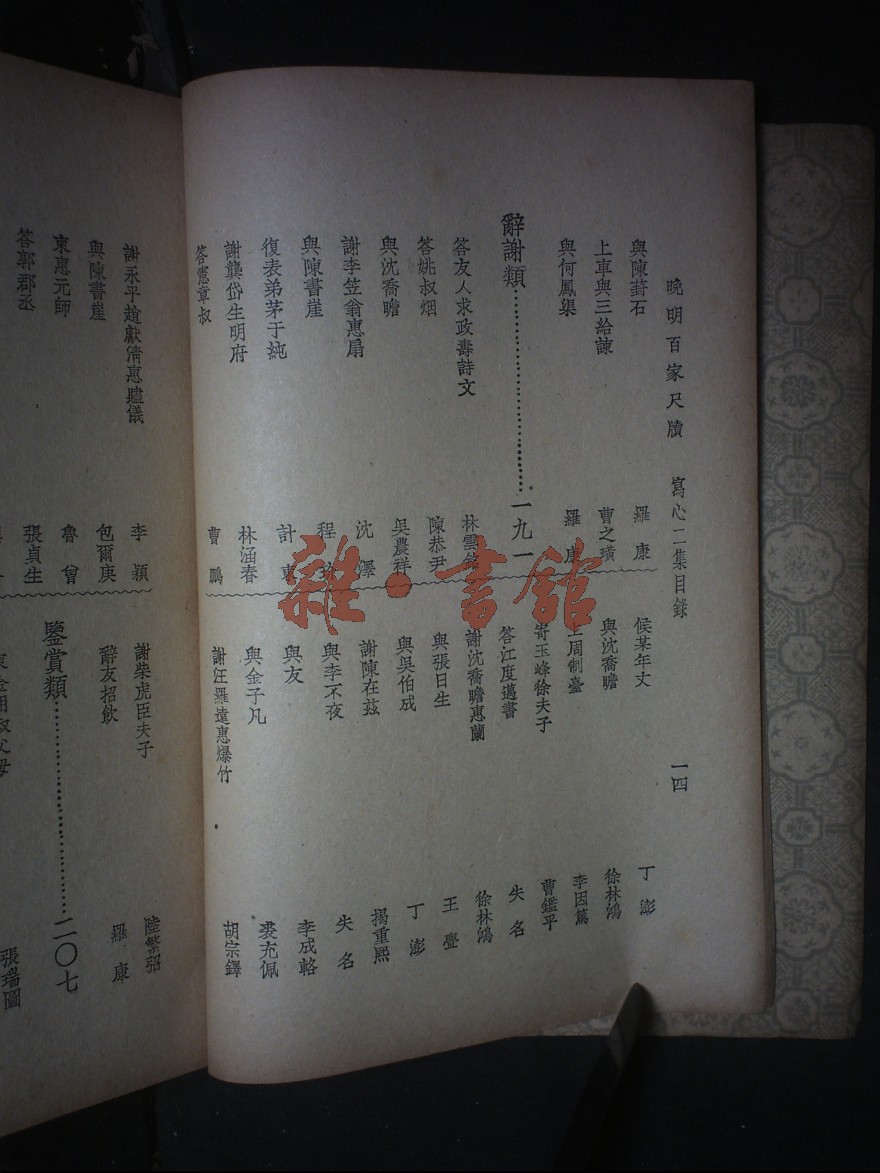 晚明百家尺牘 寫心二集目錄 一四
與陳葑石 羅康
上車與三給諫 曹之璜
與何鳳渠 羅康
辭謝類 一九一
答友人求政壽詩文 林雲銘
答姚叔烟 陳恭尹
與沈喬瞻 吳農祥
謝李笠翁惠扇 沈澤
與陳書崖 程
復表弟茅于純 計東
謝龔岱生明府 林涵春
答憲章叔 曹鵬
候某年丈 丁澎
與沈喬瞻 徐林鴻
上周制臺 李因篤
寄玉峰徐夫子 曹鑑平
答江度邁書 失名
謝沈喬瞻惠蘭 徐林鴻
與張日生 王疊
與吳伯成 丁澎
謝陳在茲 揭重熙
與李不夜 失名
與友 李成輅
與金子凡 裘充佩
謝汪羅遠惠爆竹 胡宗鐸
謝永平趙獻清惠贐儀 李穎
與陳書崖 包爾庚
柬惠元師 魯曾
答郭郡丞 張貞生
謝柴虎臣夫子 陸繁弨
辭友招飲 羅康
鑒賞類 二〇七
張瑞圖
雜·書館